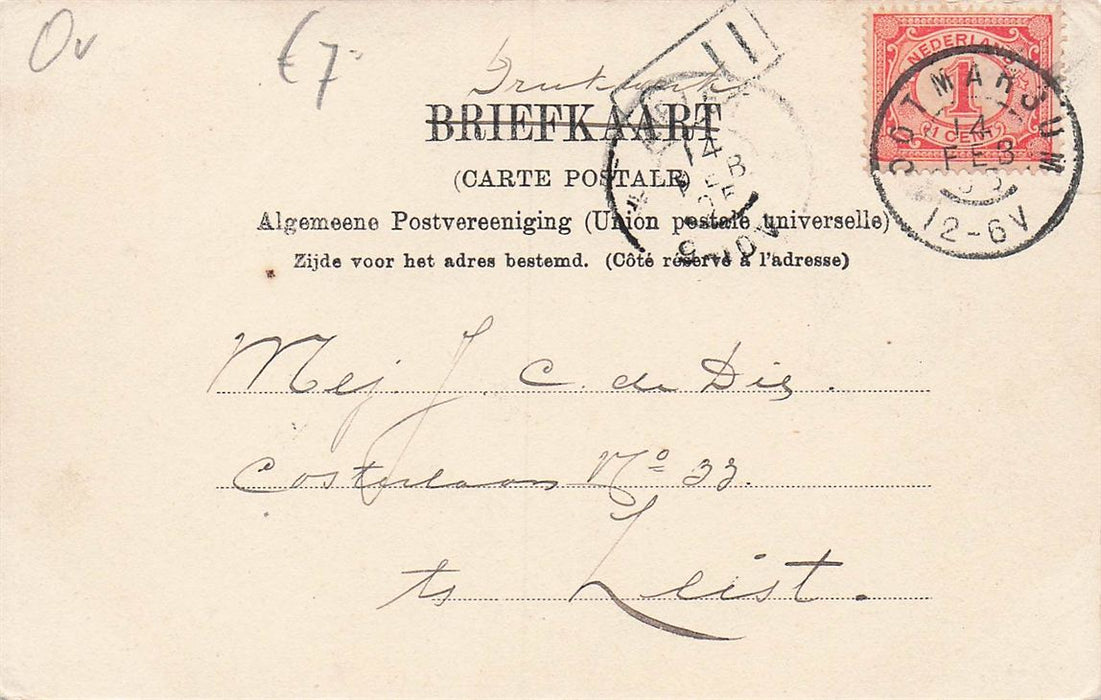 Ov €7
II
Drukwerk
BRIEFKAART
(CARTE POSTALE)
Algemeene Postvereeniging (Union postale universelle)
Zijde voor het adres bestemd. (Côté réservé à l'adresse)
NEDERLAND
1
1 CENT
OOTMARSUM
14
FEB
05
12-6V
14
FEB
05
9-10V
Mej. J. C. de Die.
Costerlaan No 33.
te Zeist.